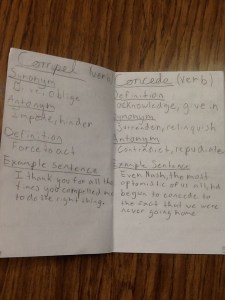 Compel (verb)
Synonym
Oblige
Antonym
Impede, hinder
Definition
Force to act
Example Sentence
I thank you for all the
times you compelled me
to do the right things.
Concede (verb)
Definition
acknowledge, give in
Synonym
Surrender, relinquish
Antonym
Contradict, repudiate
Example Sentence
Even Mosh, the most
optomistic of us all, had
begun to concede to
the fact that we were
never going home